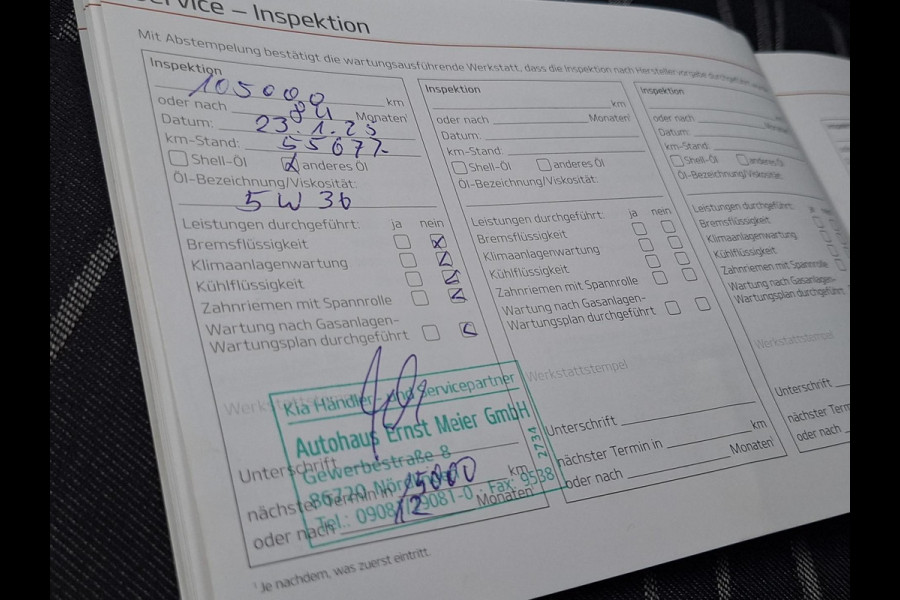 Service – Inspektion
Mit Abstempelung bestätigt die wartungsausführende Werkstatt, dass die Inspektion nach Herstellervorgabe durchgeführt
Inspektion
105000 km
oder nach 84 Monaten¹
Datum: 23.1.23
km-Stand: 55677
Shell-Öl anderes Öl
Öl-Bezeichnung/Viskosität:
5W30
Leistungen durchgeführt: ja nein
Bremsflüssigkeit
Klimaanlagenwartung
Kühlflüssigkeit
Zahnriemen mit Spannrolle
Wartung nach Gasanlagen-
Wartungsplan durchgeführt
Kia Händler- und Servicepartner
Autohaus Ernst Meier GmbH
Gewerbestraße 8
86720 Nördlingen
Tel.: 09081/29081-0 · Fax: 9538
2734
Unterschrift
nächster Termin in 15000 km
oder nach 12 Monaten¹
Inspektion
km
oder nach Monaten¹
Datum:
km-Stand:
Shell-Öl anderes Öl
Öl-Bezeichnung/Viskosität:
Leistungen durchgeführt: ja nein
Bremsflüssigkeit
Klimaanlagenwartung
Kühlflüssigkeit
Zahnriemen mit Spannrolle
Wartung nach Gasanlagen-
Wartungsplan durchgeführt
Werkstattstempel
Unterschrift
nächster Termin in km
oder nach Monaten¹
Inspektion
km
oder nach Monaten
Datum:
km-Stand:
Shell-Öl anderes Öl
Öl-Bezeichnung/Viskosität:
Leistungen durchgeführt:
Bremsflüssigkeit
Klimaanlagenwartung
Kühlflüssigkeit
Zahnriemen mit Spannrolle
Wartung nach Gasanlagen-
Wartungsplan durchgeführt
Werkstattstempel
Unterschrift
nächster Termin
oder nach
¹ Je nachdem, was zuerst eintritt.